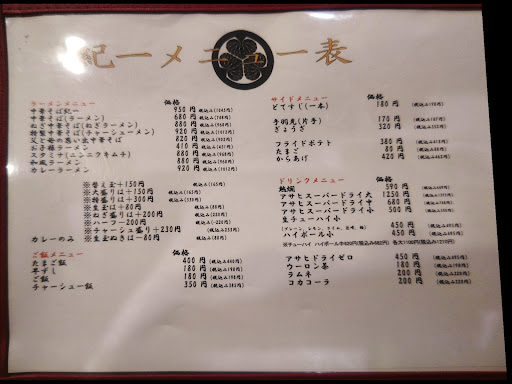 紀一メニュー表
ラーメンメニュー 価格
中華そば紀一 950円 (税込み1045円)
中華そば(ラーメン) 680円 (税込み748円)
ねぎ中華そば(ねぎラーメン) 880円 (税込み968円)
特製中華そば(チャーシューメン) 920円 (税込み1012円)
父と母の思い出中華そば 820円 (税込み902円)
お子様ラーメン 410円 (税込み451円)
スタミナ(ニンニクキムチ) 880円 (税込み968円)
和風ラーメン 880円 (税込み968円)
カレーラーメン 920円 (税込み1012円)
※替え玉+150円 (税込み165円)
※大盛りは+150円 (税込み165円)
※特盛りは+300円 (税込み330円)
※生玉は+80円 (税込み88円)
※ねぎ盛りは+200円 (税込み220円)
※ハーフ-200円 (税込み-220円)
※チャーシュ盛り+230円 (税込み253円)
カレーのみ ※生玉ぬきは-80円 (税込み88円)
ご飯メニュー 価格
たまご飯 400円 (税込み440円)
早ずし 180円 (税込み198円)
ご飯 180円 (税込み198円)
チャーシュー飯 350円 (税込み385円)
サイドメニュー 価格
どてすじ(一本) 180円 (税込み198円)
手羽先(片手) 170円 (税込み187円)
ぎょうざ 320円 (税込み352円)
フライドポテト 380円 (税込み418円)
たまご 80円 (税込み88円)
からあげ 420円 (税込み462円)
ドリンクメニュー 価格
熱燗 590円 (税込み649円)
アサヒスーパードライ大 1250円
アサヒスーパードライ中 680円 (税込み748円)
アサヒスーパードライ小 500円 (税込み550円)
生チューハイ小
(プレーン、レモン、ライム、巨峰、梅) 450円 (税込み495円)
ハイボール小 450円 (税込み495円)
※中チューハイ ハイボール中620円(税込み682円) 各大1100円(税込み1210円)
アサヒドライゼロ 450円 (税込み495円)
ウーロン茶 180円 (税込み198円)
ラムネ 200円 (税込み220円)
コカコーラ 200円 (税込み220円)